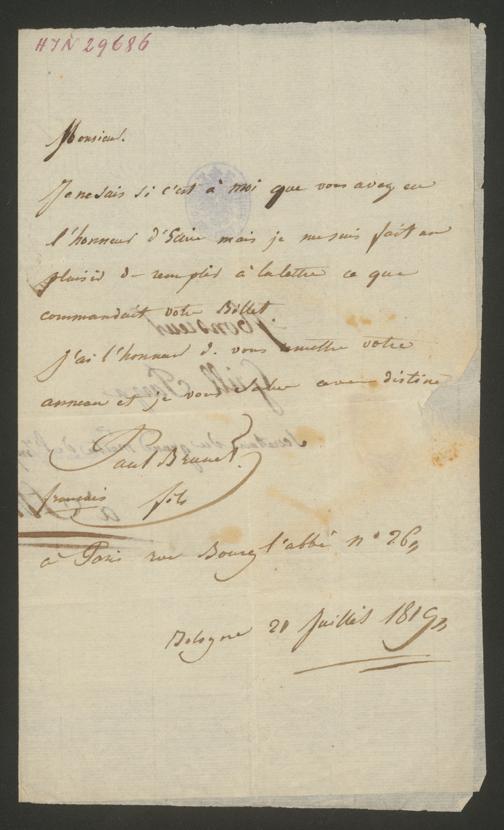 HIN 29686
Monsieur.
Je ne sais si c'est à moi que vous avez eu
l'honneur d'Ecrire mais je me suis fait un
plaisir de remplir à la lettre ce que
commandait votre Billet.
J'ai l'honneur de vous remettre votre
anneau et je vous salue avec
Paul Brunet.
français fils
à Paris rue Bourg l'abbé n° 26
Bologne 21 Juillet 1819